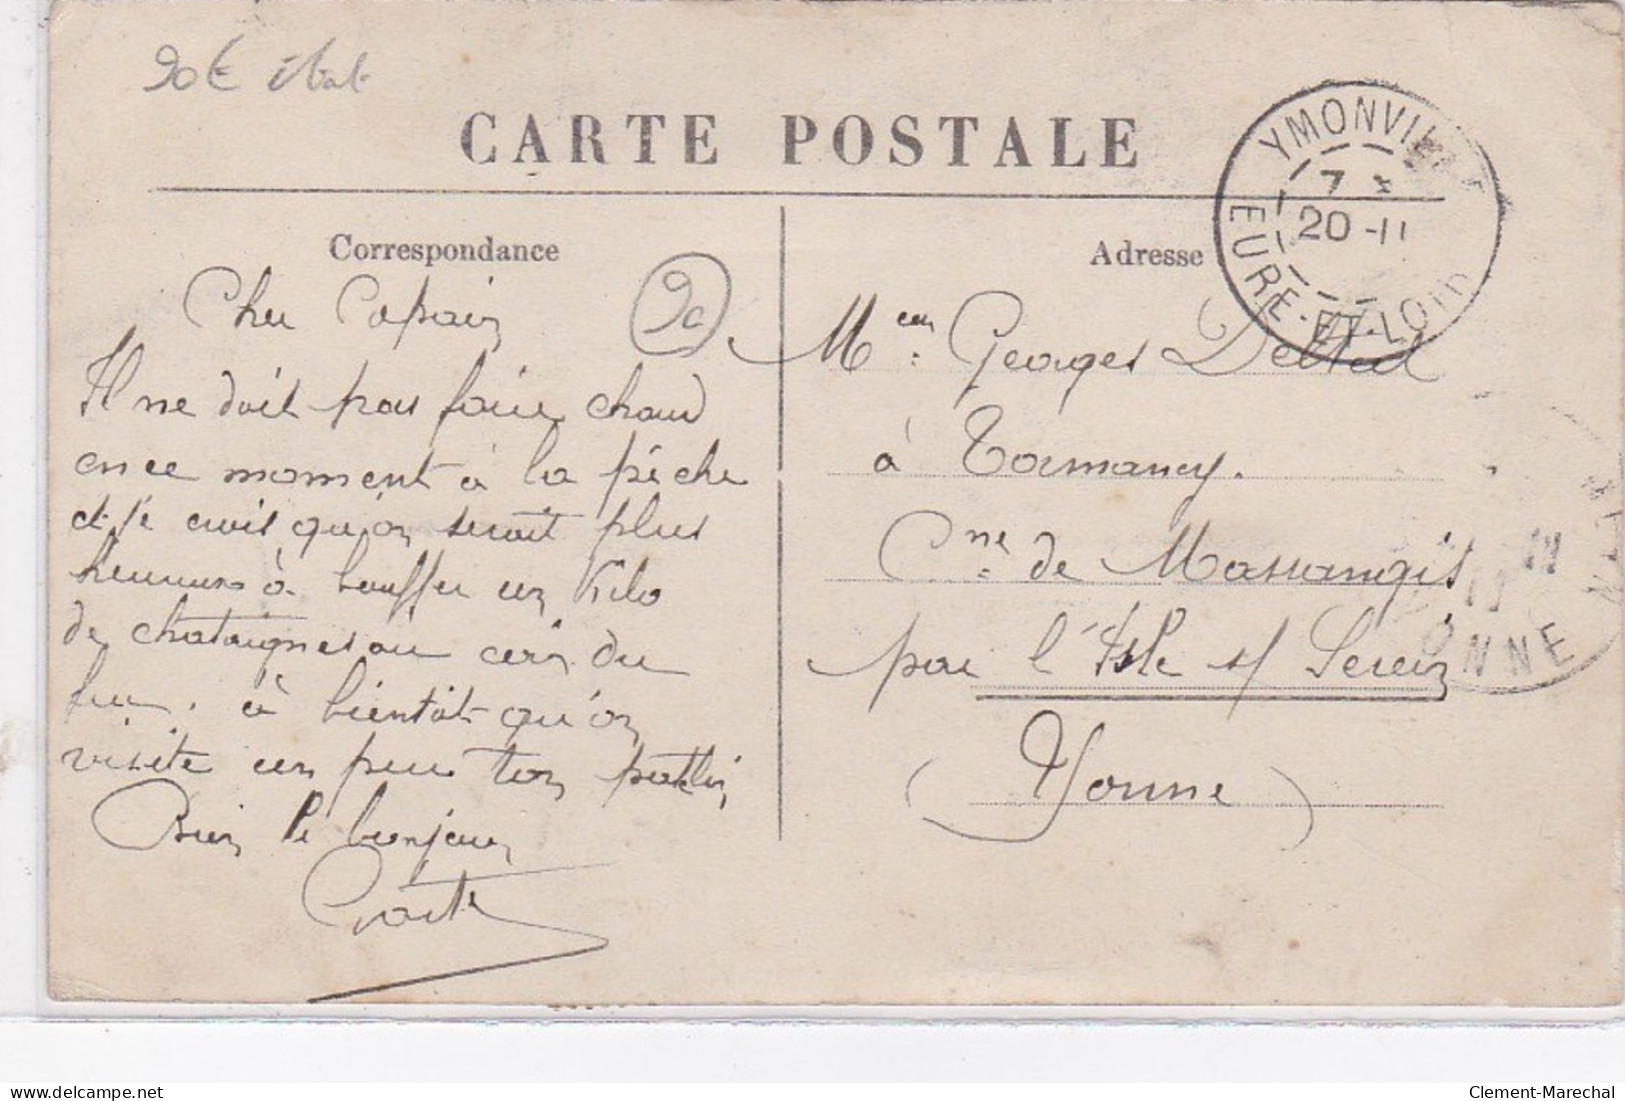 90€ état
CARTE POSTALE
YMONVILLE
7
20-11
EURE-ET-LOIR
Correspondance
Adresse
90
Cher Copain
Il ne doit pas faire chaud
en ce moment à la pêche
et je crois qu'on serait plus
heureux à bouffer un Kilo
de chataignes au coin du
feu. à bientôt qu'on
visite un peu ton patelin
Bien le bonjour
Mr Georges
à Tormancy.
Cne de Massangis
par l'Isle s/ Serein
(Yonne)
YONNE
delcampe.net
Clement-Marechal